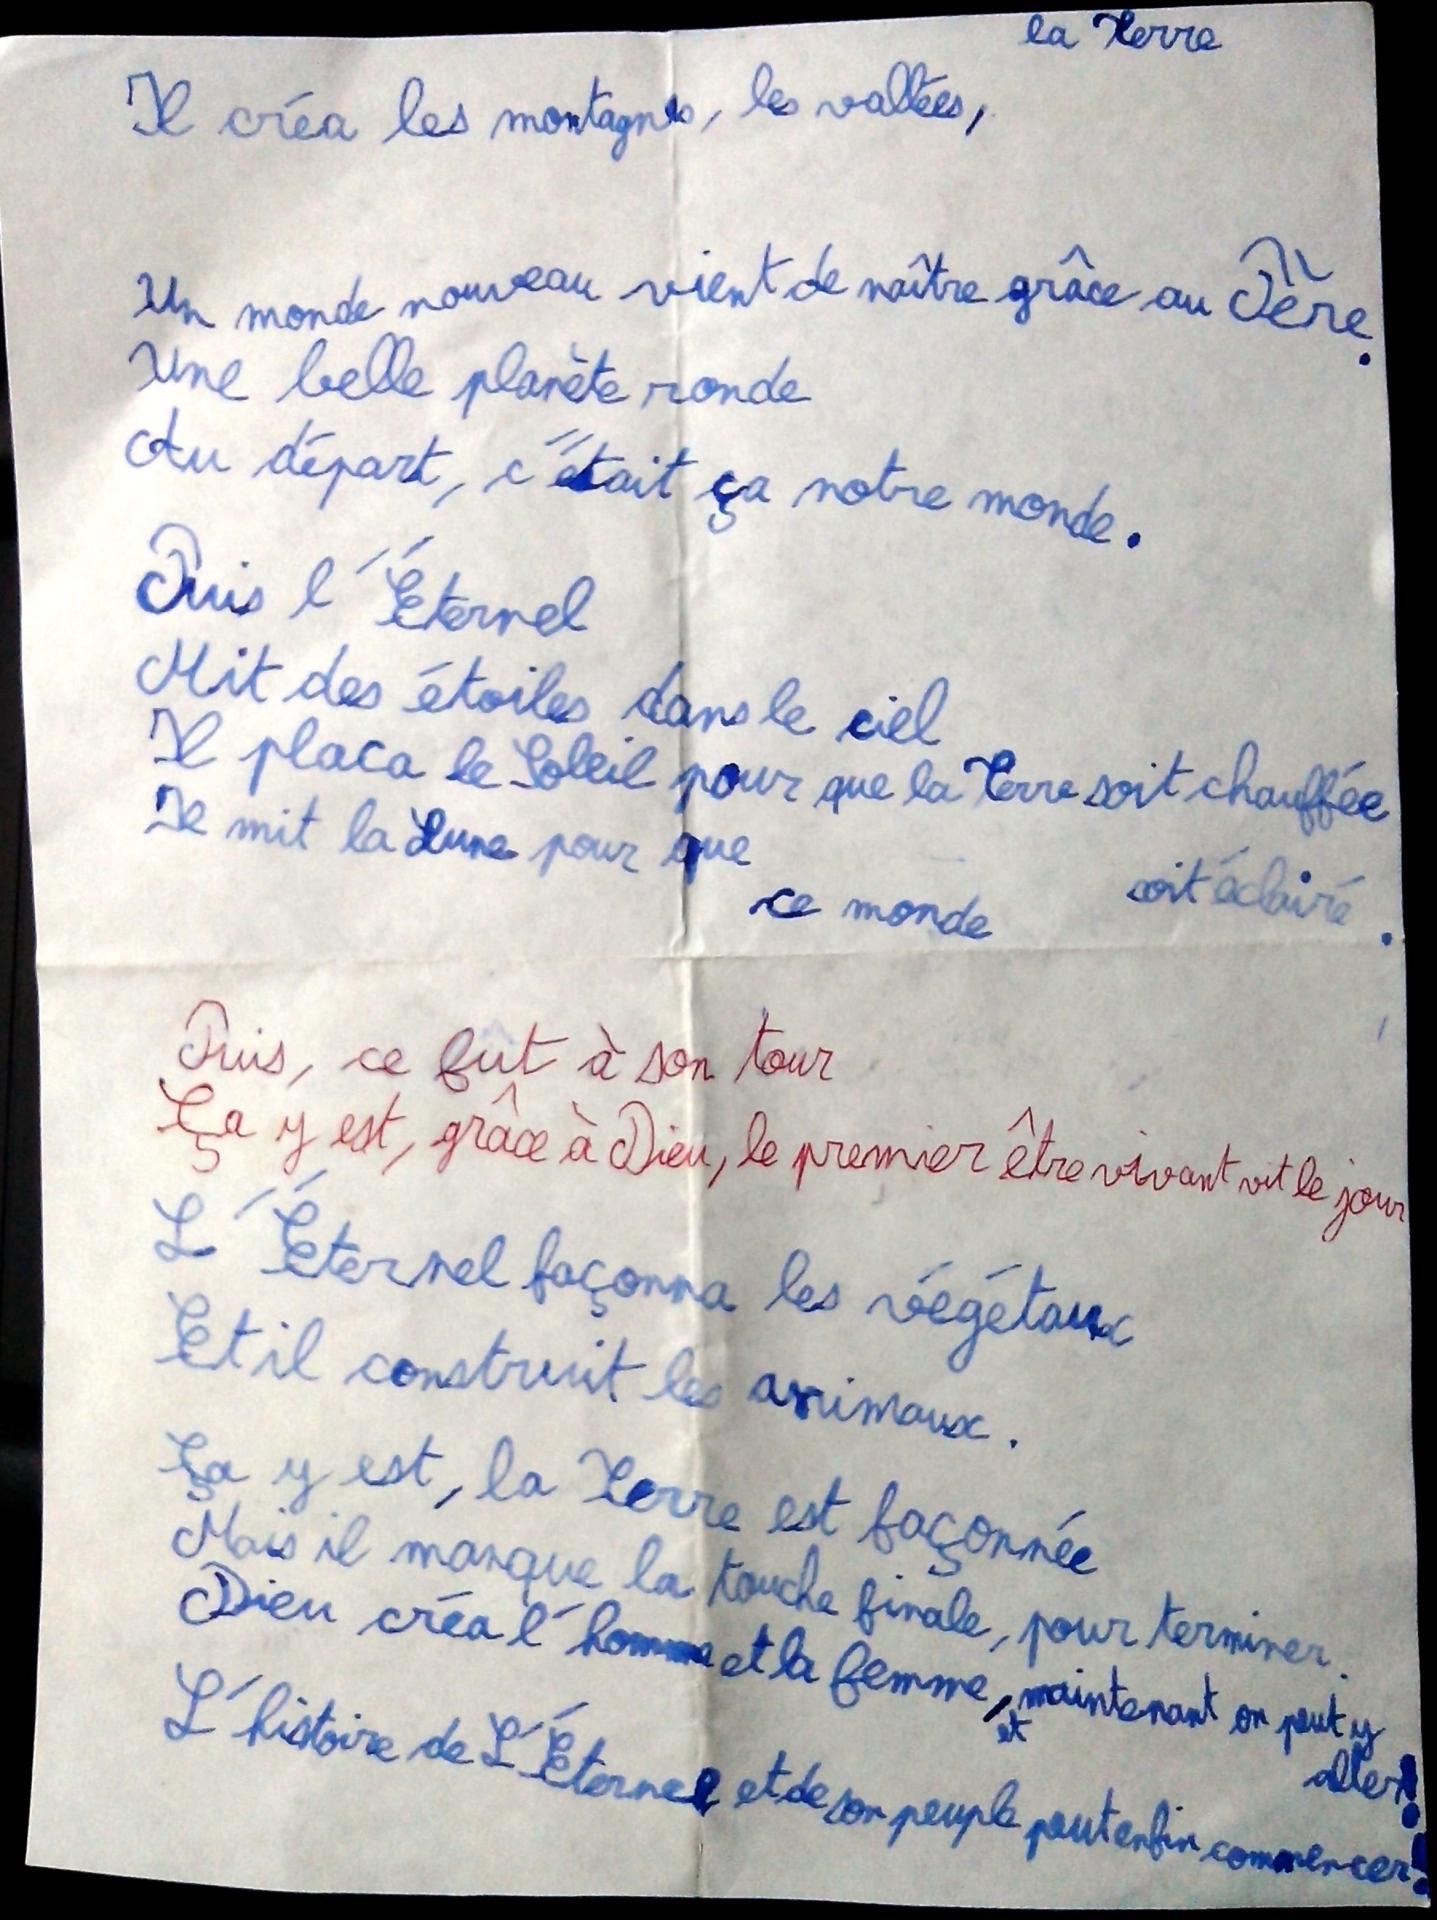 la Terre
Il créa les montagnes, les vallées,
Un monde nouveau vient de naître grâce au Père.
Une belle planète ronde
Au départ, c'était ça notre monde.
Puis l'Éternel
Mit des étoiles dans le ciel
Il placa le Soleil pour que la Terre soit chauffée
Il mit la Lune pour que
ce monde soit éclairé.
Puis, ce fut à son tour
Ça y est, grâce à Dieu, le premier être vivant vit le jour
L'Éternel façonna les végétaux
Et il construit les animaux.
Ça y est, la Terre est façonnée
Mais il manque la touche finale, pour terminer.
Dieu créa l'homme et la femme, et maintenant on peut y
aller!
L'histoire de L'Éternel et de son peuple peut enfin commencer!